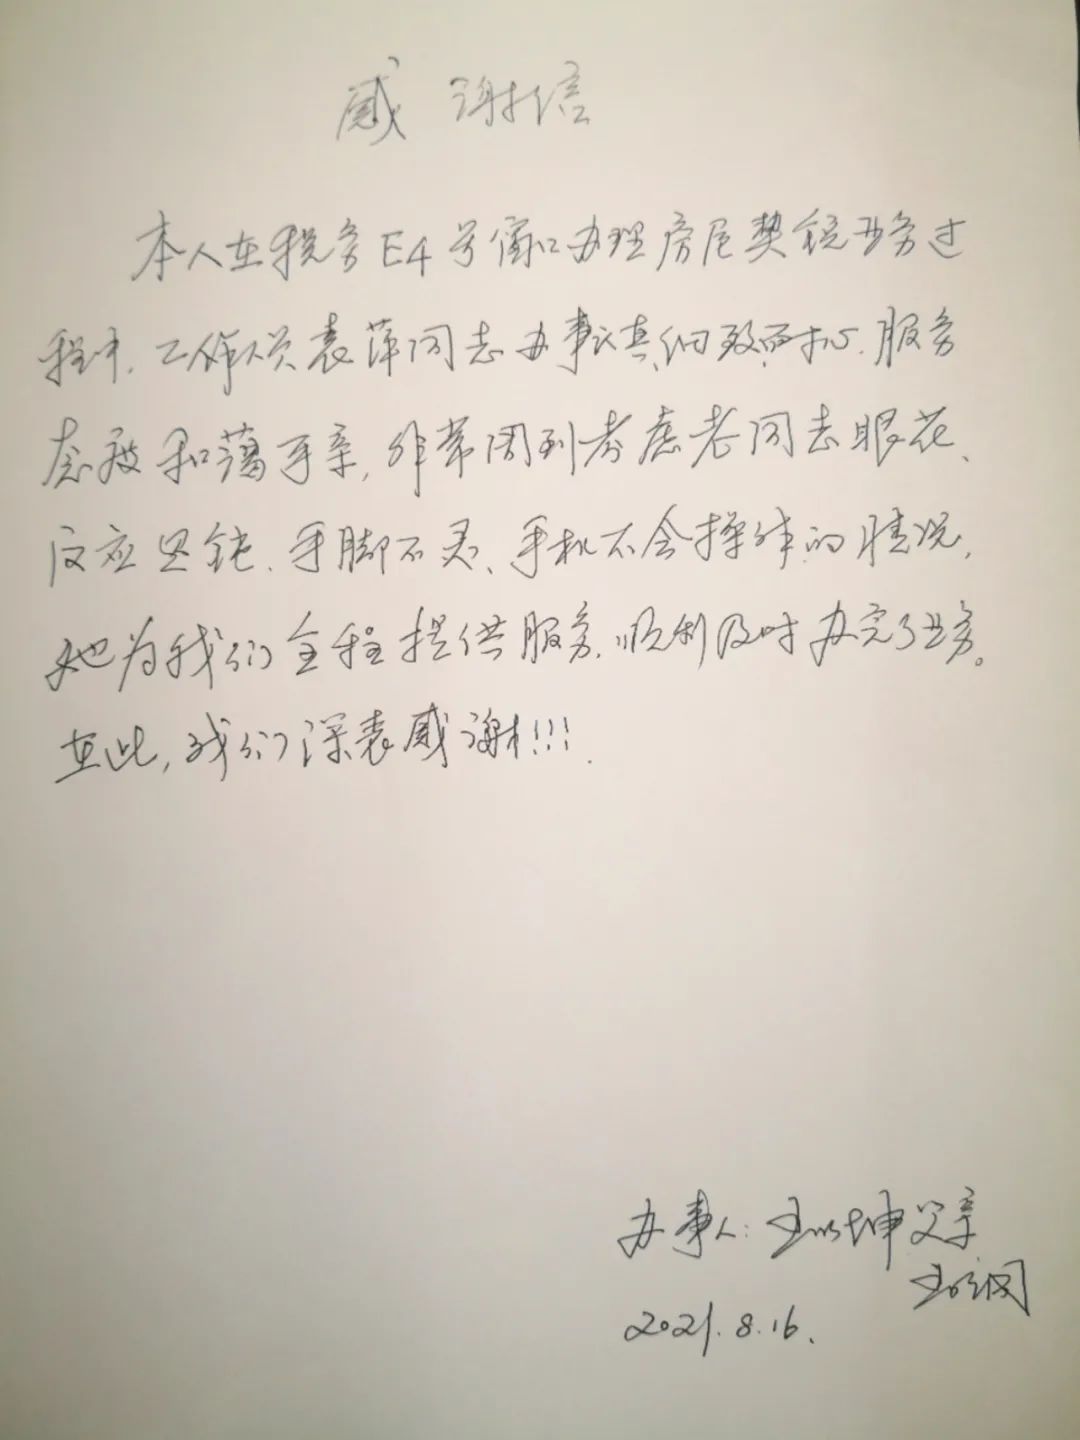 感谢信
本人在税务E4号窗口办理房屋契税业务过
程中,工作人员袁萍同志办事认真细致耐心,服务
态度和蔼可亲,非常周到考虑老同志眼花、
反应迟钝、手脚不灵、手机不会操作的情况,
她为我们全程提供服务,顺利及时办完了业务。
在此,我们深表感谢!!!
办事人:王以坤父亲
2021.8.16.